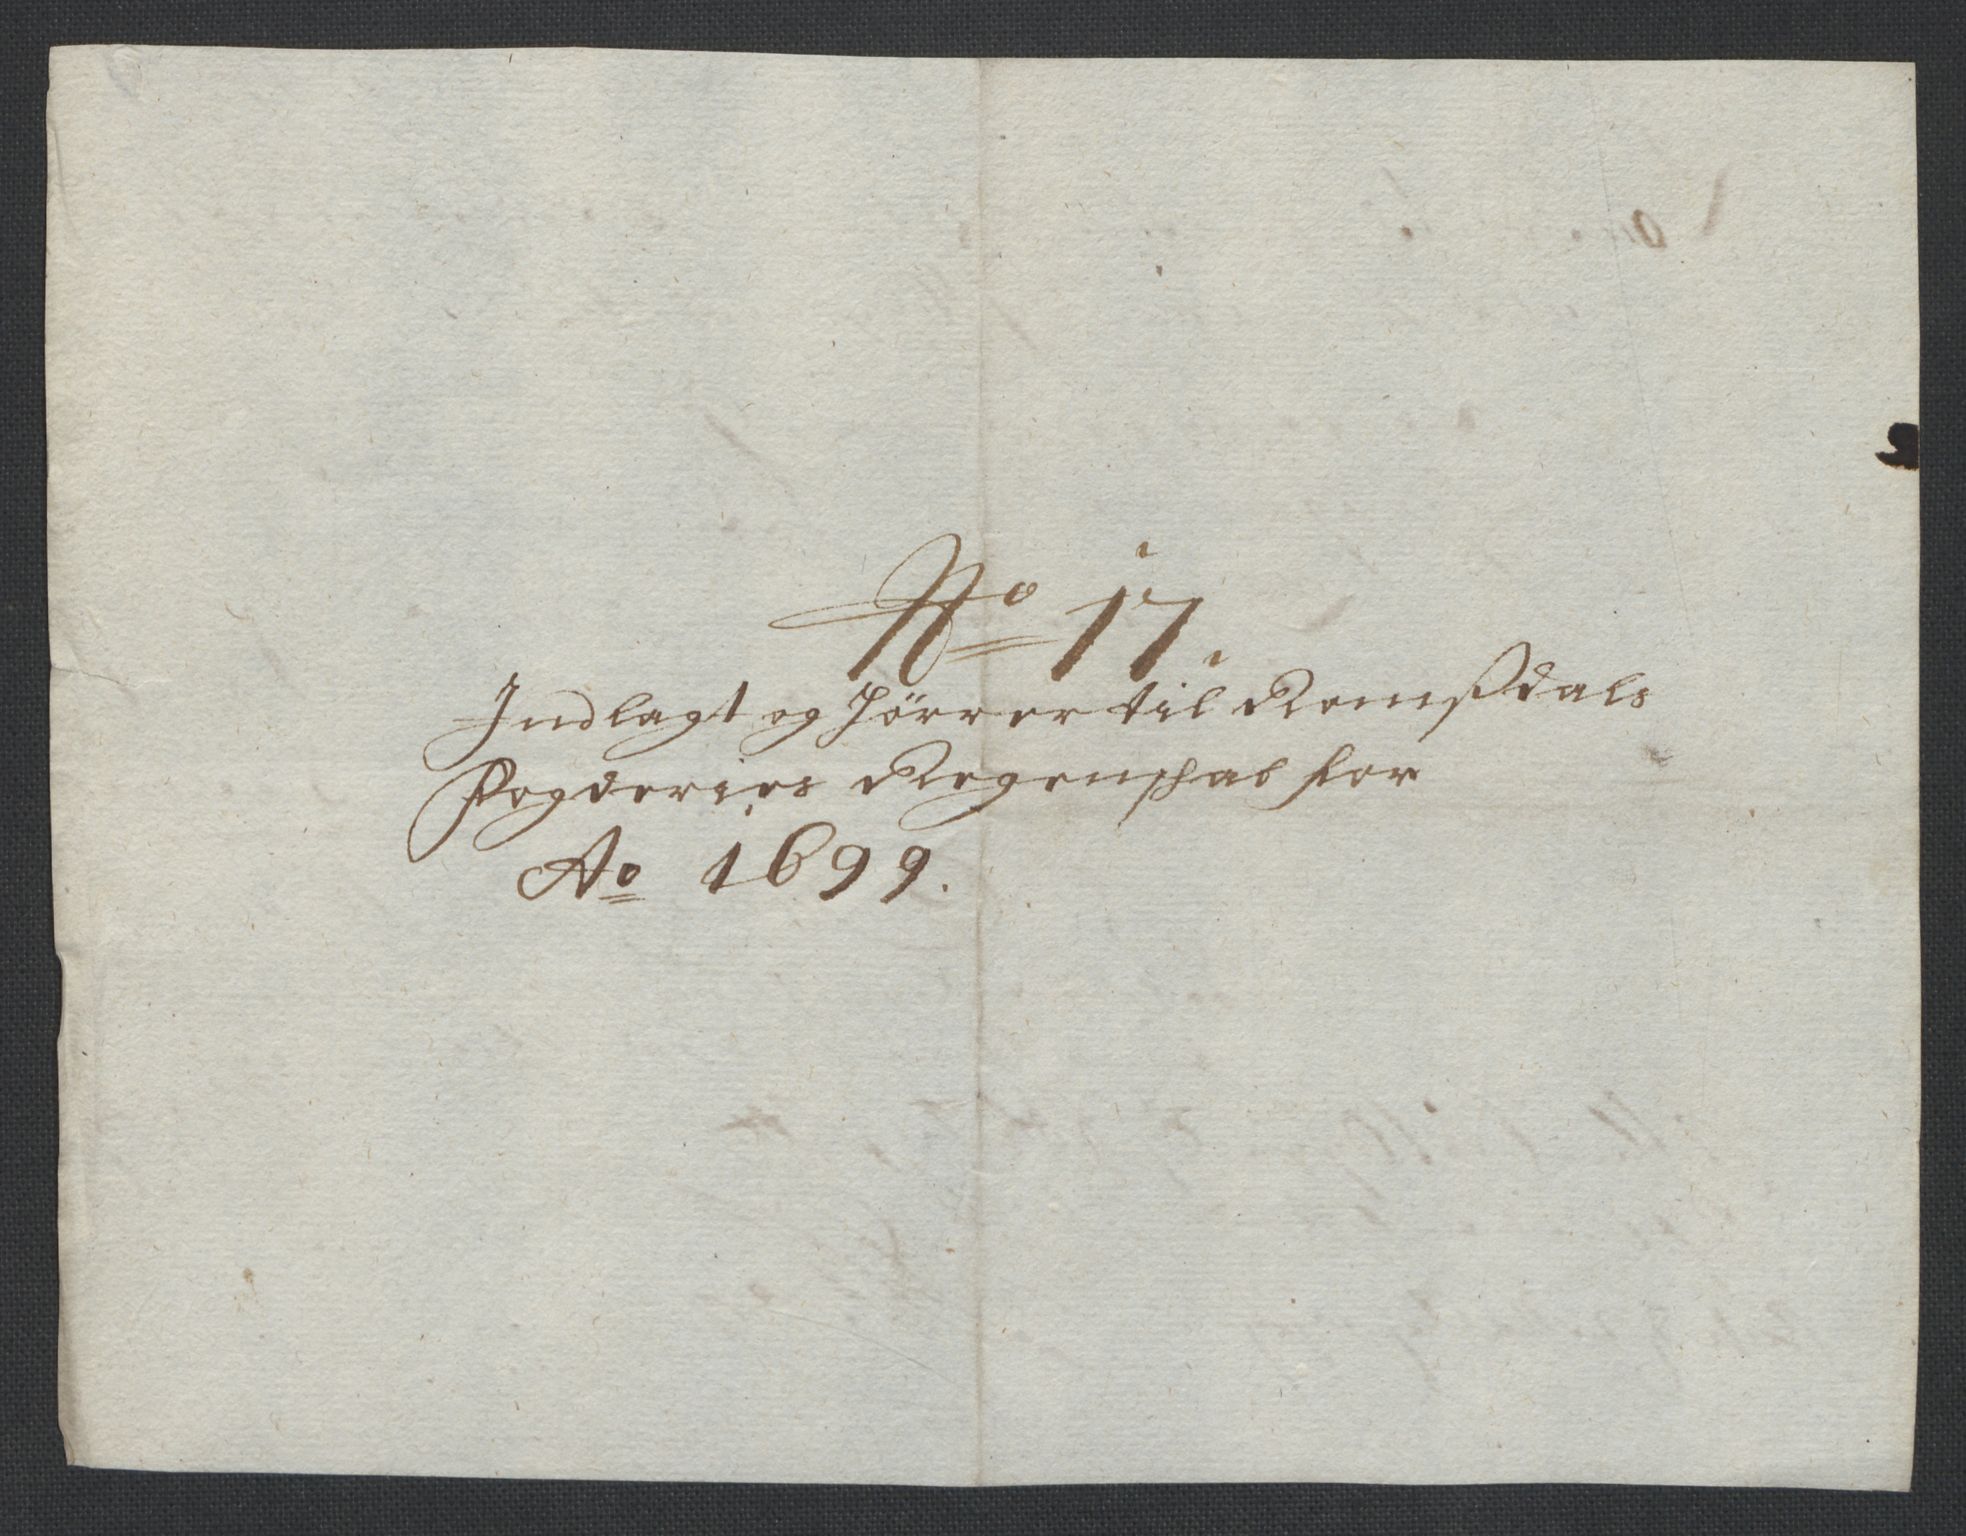 No 17.
Indlagt og hörer til Romßdals
Fogderies Regenschab for
Ao 1699.